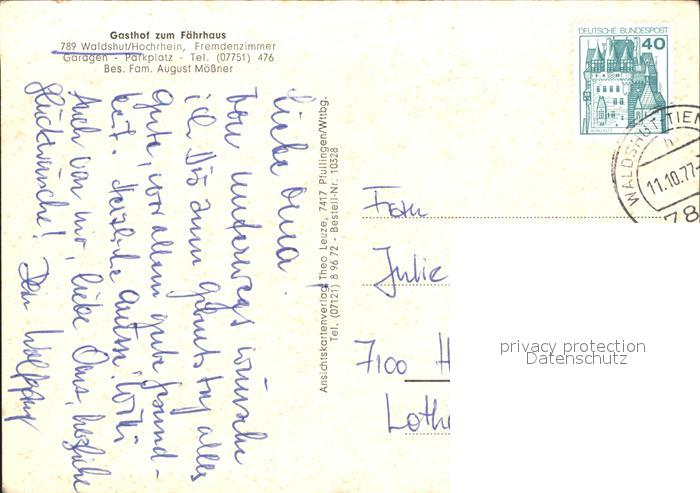 Gasthof zum Fährhaus
789 Waldshut/Hochrhein, Fremdenzimmer
Garagen - Parkplatz - Tel. (07751) 476
Bes. Fam. August Mößner
Liebe Oma!
Von unterwegs wünsche
ich Dir zum Geburtstag alles
Gute, vor allem gute Gesund-
heit. Herzliche Grüße,
Auch von mir, liebe Oma, herzliche
Glückwünsche! Dein Wolfgang
Ansichtskartenverlag Theo Leuze, 7417 Pfullingen/Wttbg.
Tel. (07121) 8 96 72 - Bestell-Nr. 10328
DEUTSCHE BUNDESPOST
40
BURG ELTZ
WALDSHUT-TIEN
11.10.77
78
Frau
Julie
7100 H
Loth
privacy protection
Datenschutz